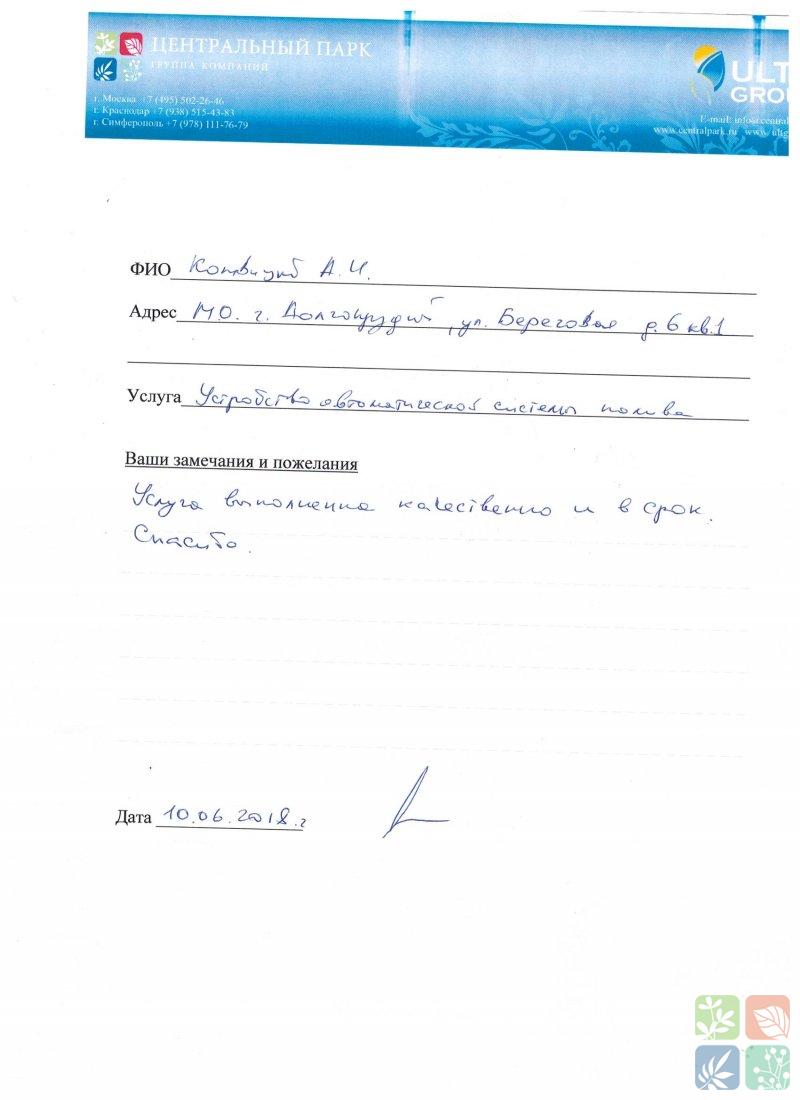 ЦЕНТРАЛЬНЫЙ ПАРК
ГРУППА КОМПАНИЙ
г. Москва +7 (495) 502-26-46
г. Краснодар +7 (938) 515-43-83
г. Симферополь +7 (978) 111-76-79
ULT
GROU
E-mail: info@central
www.centralpark.ru www.ultg
ФИО А.И.
Адрес М.О. г. Долгопрудный, ул. Береговая д.6 кв.1
Услуга Устройство автоматической системы полива
Ваши замечания и пожелания
Услуга выполненна качественно и в срок.
Спасибо.
Дата 10.06.2018.г